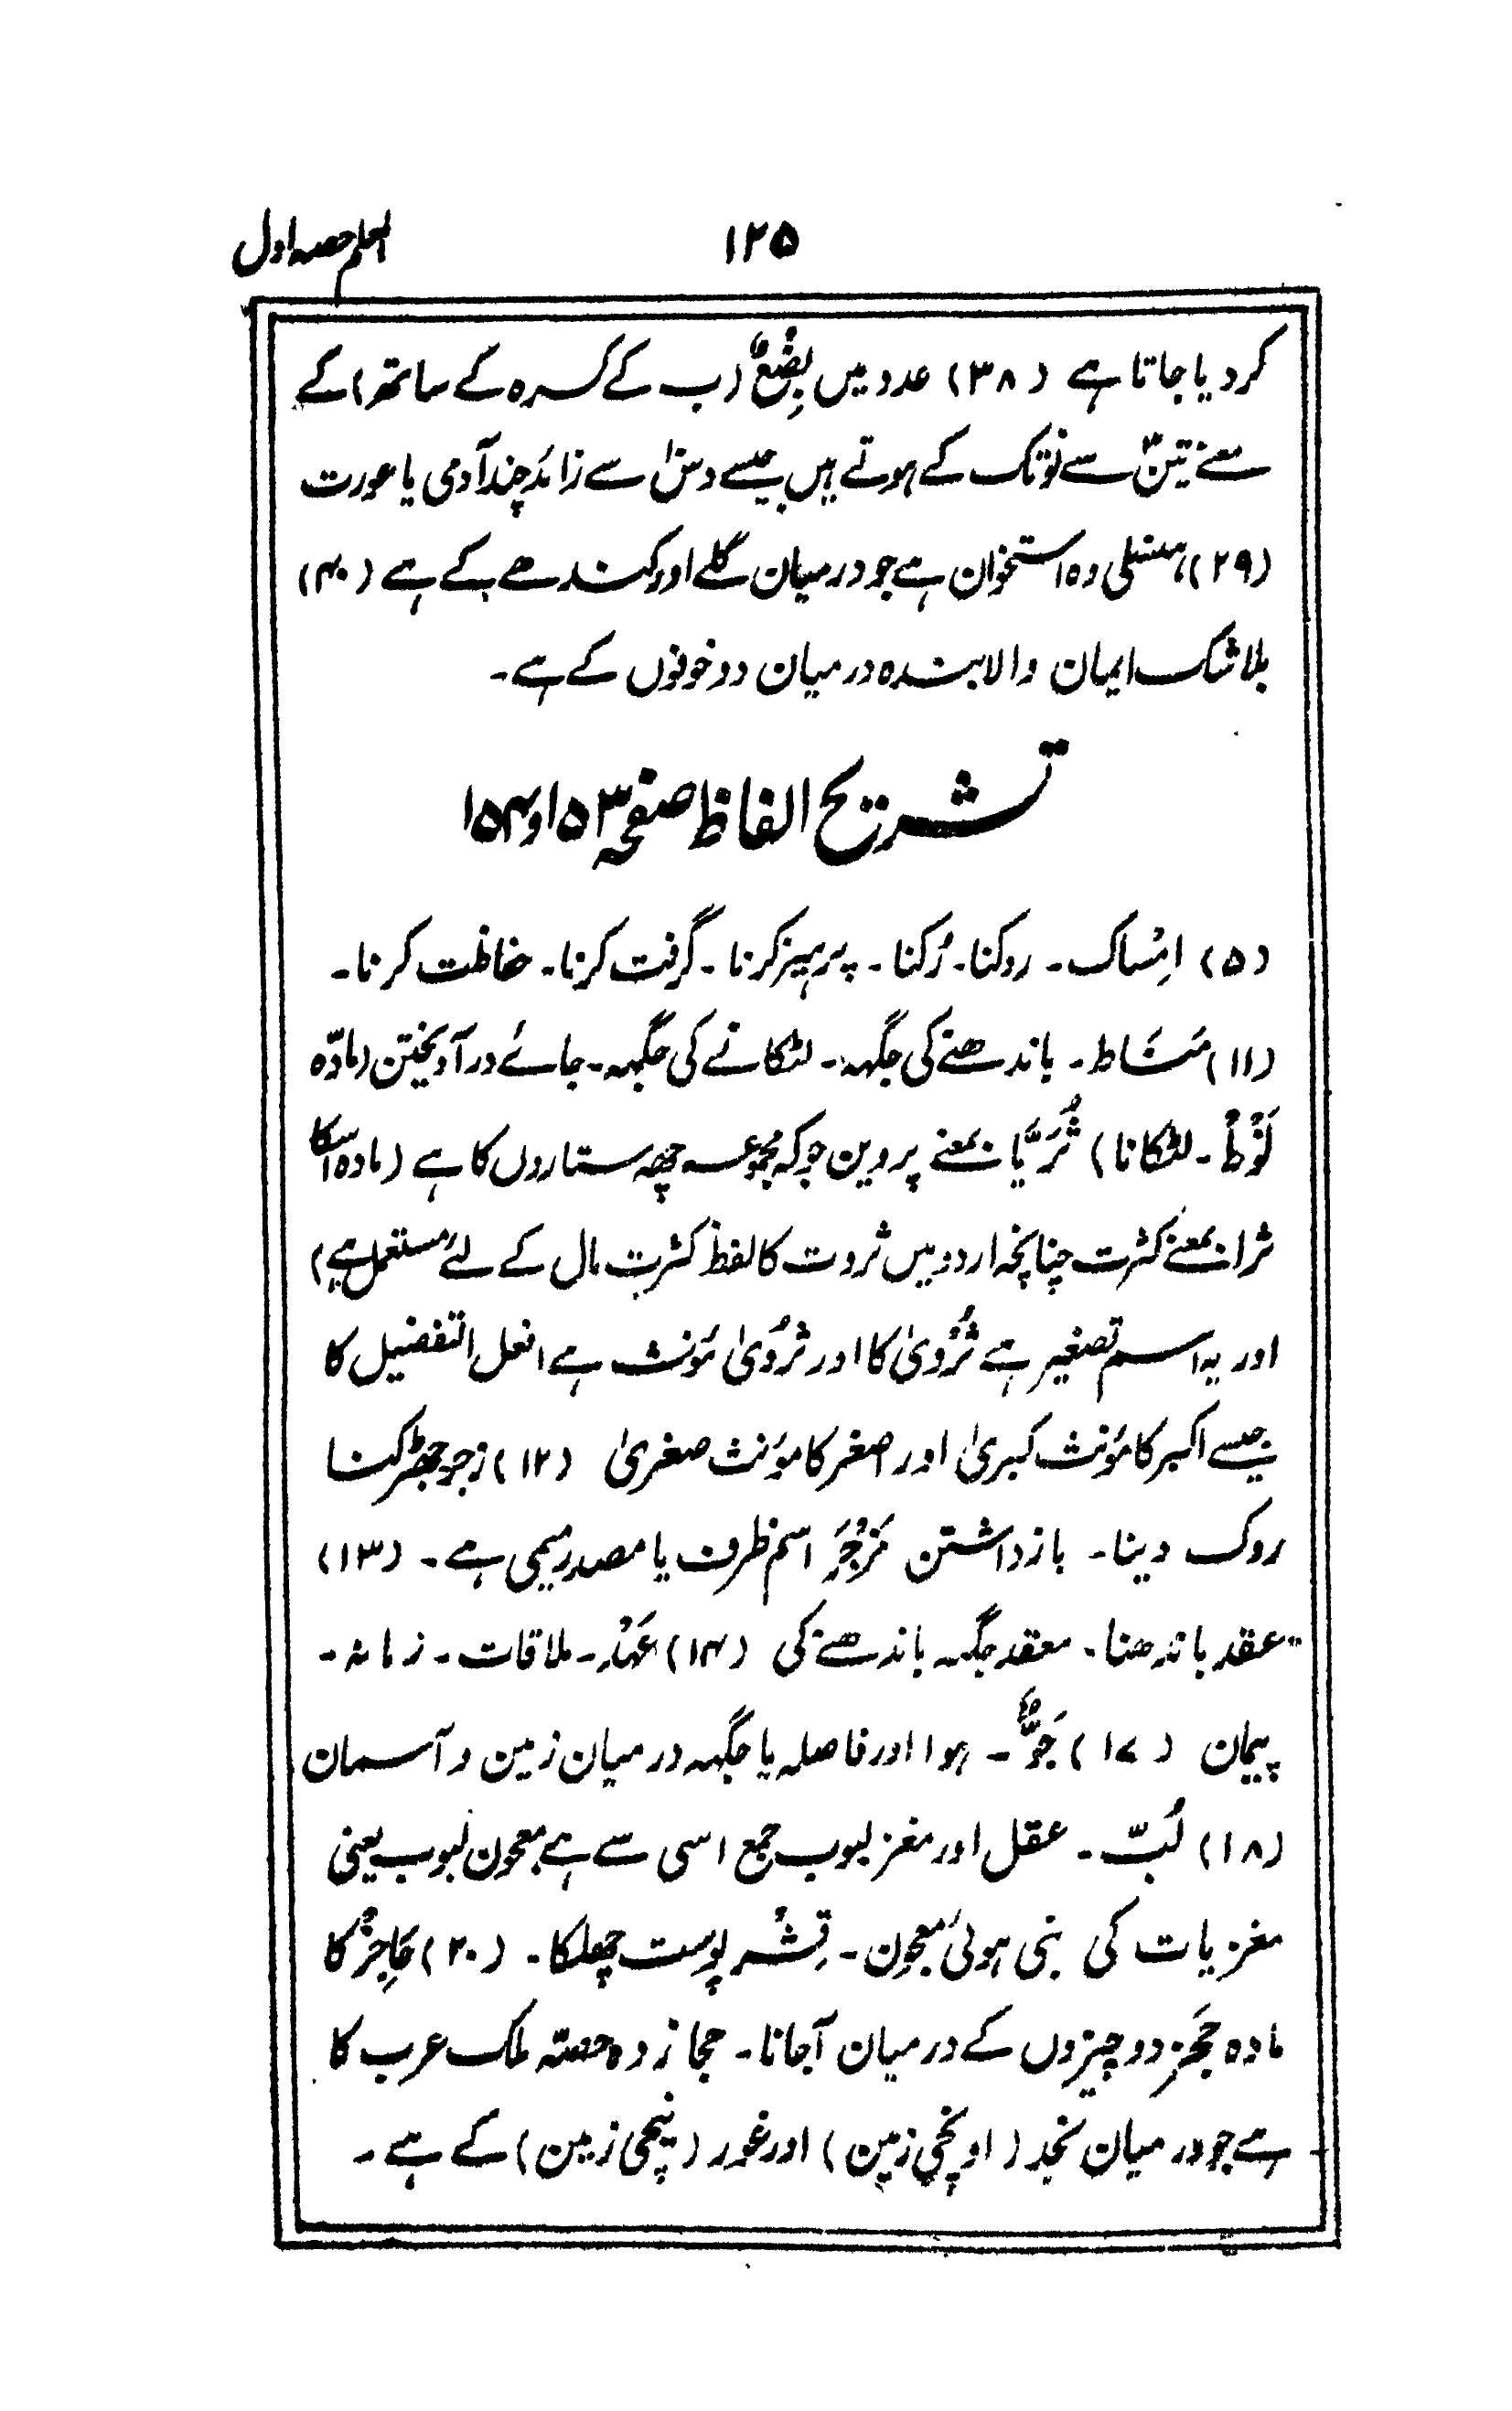 ۱۲۵
المعلم حصہ اول
کردیا جاتا ہے (۳۸) عدد میں بِضْعٌ (ب کے کسرہ کے ساتھ) کے
معنے تین۳ سے نو تک کے ہوتے ہیں جیسے دس۱۰ سے زائد چند آدمی یا عورت
(۲۹) ہنسلی وہ استخوان ہے جو درمیان گلے اور کندھے کے ہے (۴۰)
بلا شک ایمان والا بندہ درمیان دو خوفوں کے ہے۔
تشریح الفاظ صفحہ ۱۵۳ و ۱۵۴
(۵) اِمْساک۔ روکنا۔ رُکنا۔ پرہیز کرنا۔ گرفت کرنا۔ حفاظت کرنا۔
(۱۱) مَنَاط۔ باندھنے کی جگہہ۔ لٹکانے کی جگہہ۔ جائے درآویختن (مادّہ
نَوْطٌ۔ لٹکانا) ثُرَیَّا بمعنے پروین جو کہ مجموعہ چھہ ستاروں کا ہے (مادہ اسکا
ثرا بمعنے کثرت چنانچہ اردو میں ثروت کا لفظ کثرت مال کے لئے مستعمل ہے)
اور یہ اسم تصغیر ہے ثُرْویٰ کا اور ثروُیٰ مؤنث ہے افعل التفضیل کا
جیسے اکبر کا مؤنث کبریٰ اور اصغر کا مؤنث صغریٰ (۱۲) زجر جھڑکنا
روک دینا۔ بازداشتن مَزْجَر اسم ظرف یا مصدر میمی ہے۔ (۱۳)
عقد باندھنا۔ معقد جگہہ باندھنے کی (۱۴) عَہْد۔ ملاقات۔ زمانہ۔
پیمان (۱۷) جَوٌّ۔ ہوا اور فاصلہ یا جگہہ درمیان زمین و آسمان
(۱۸) لُبّ۔ عقل اور مغز لبوب جمع اسی سے ہے معجون لبوب یعنی
مغزیات کی بنی ہوئی معجون۔ قِشْر پوست چھلکا۔ (۲۰) حَاجِزٌ کا
مادہ حَجْز دو چیزوں کے درمیان آجانا۔ حجاز وہ حصّہ ملک عرب کا
ہے جو درمیان نجد (اونچی زمین) اور غور (نیچی زمین) کے ہے۔